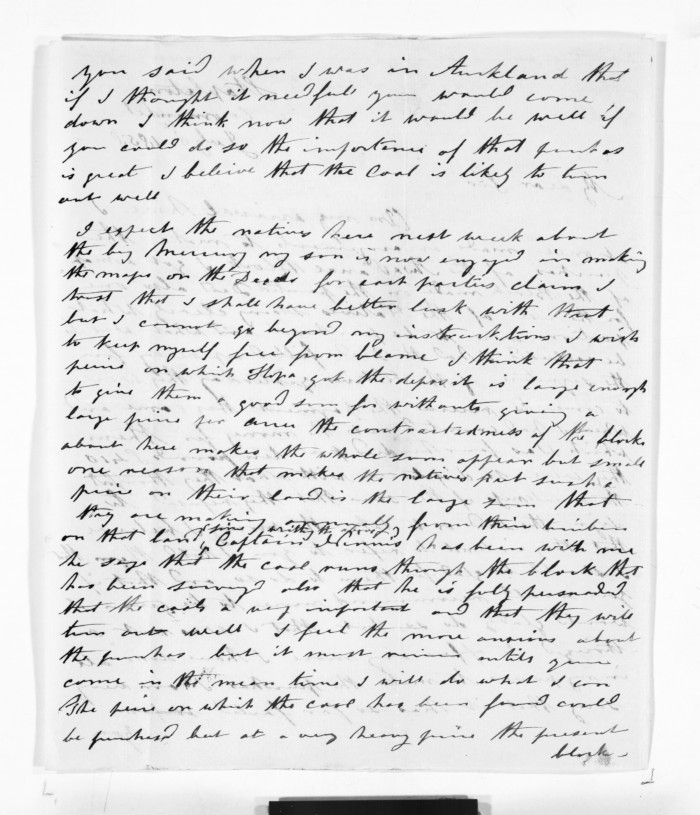 you said when I was in Auckland that
if I thought it needfull you would come
down I think now that it would be well if
you could do so the importance of that purchas
is great I beleive that the Coal is likely to turn
out well
I expect the natives here next week about
the big Mercury my son is now engaged in making
the maps on the Deeds for each parties claim I
trust that I shall have better luck with that
but I cannot go beyond my instructions I wish
to keep myself free from blame I think that
peice on which Hopa got the deposit is large enough
to give them a good sum for without giving a
large price per acre the contractedness of the blocks
about here makes the whole sum appear but small
one reason that makes the natives put such a
price on their land is the large sum that
they are making annually from their timber
on that land (since writing the above) Captain Drinnis has been with me
he says that the coal runs through the block that
has been surveyd also that he is fully persuaded
that the coal is a very important and that they will
turn out well I feel the more anxious about
the purchas but it must remain untill you
come in the mean time I will do what I can
The peice on which the coal has been found could
be purchasd but at a very heavy price the present
block -